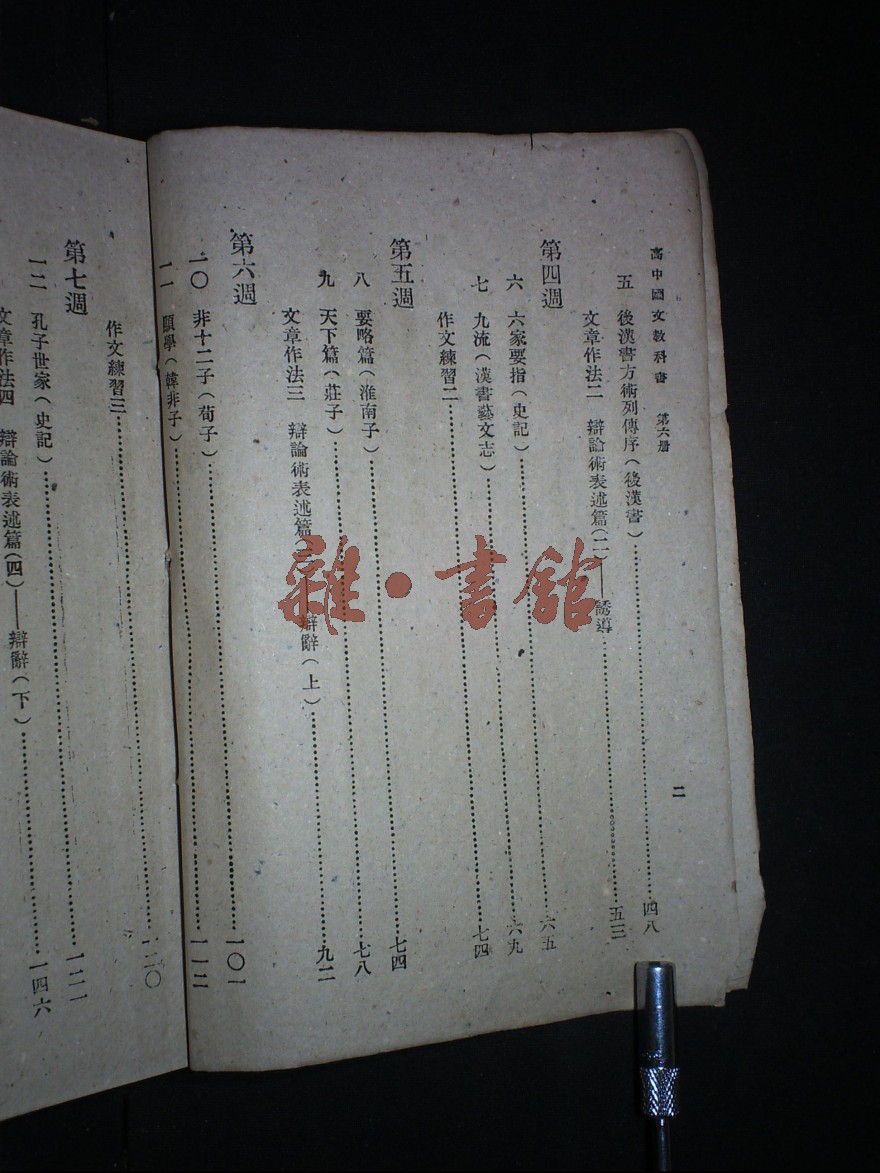 高中國文教科書 第六册 二
五 後漢書方術列傳序(後漢書)……四八
文章作法二 辯論術表述篇(二)——誘導……五三
第四週
六 六家要指(史記)……六五
七 九流(漢書藝文志)……六九
作文練習二……七四
第五週
八 要略篇(淮南子)……七四
九 天下篇(莊子)……七八
文章作法三 辯論術表述篇( 辯辭(上)……九二
第六週
一〇 非十二子(荀子)……一〇一
一一 顯學(韓非子)……一一二
作文練習三……一二〇
第七週
一二 孔子世家(史記)……一二一
文章作法四 辯論術表述篇(四)——辯辭(下)……一四六
雜·書館